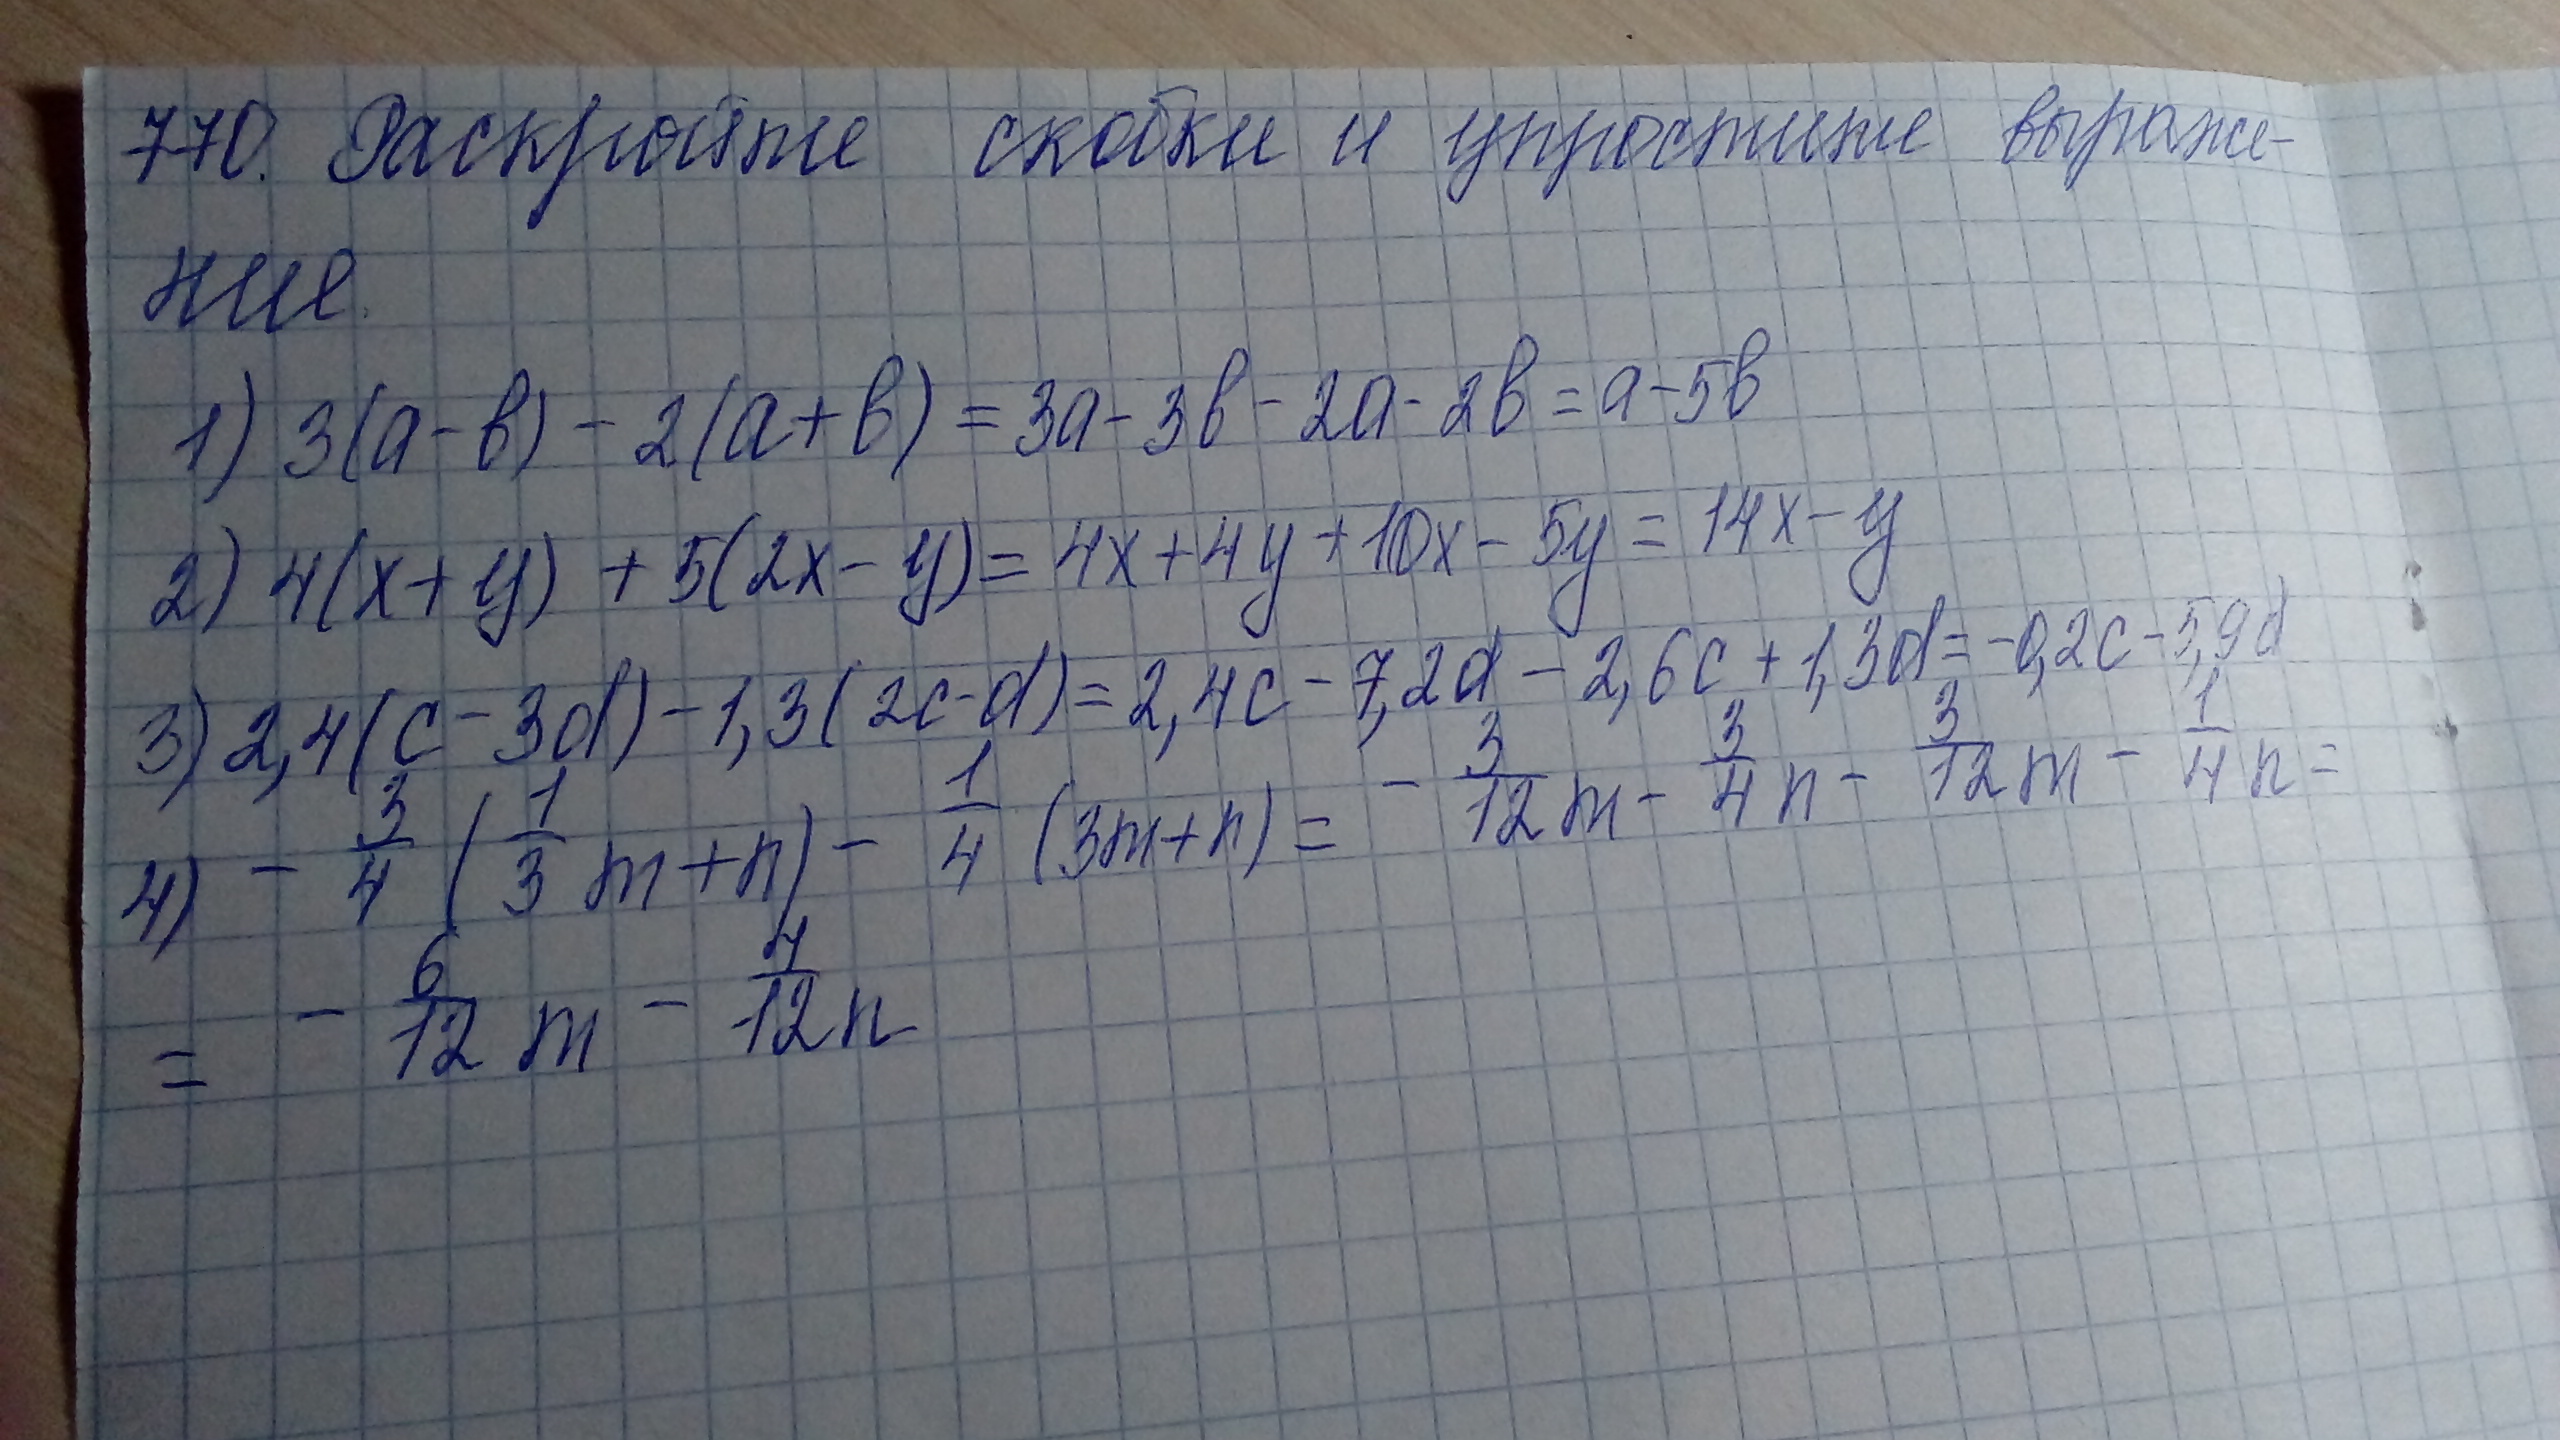 770. Раскройте скобки и упростите выраже-
ние.
1) 3(a-b) - 2(a+b) = 3a - 3b - 2a - 2b = a - 5b
2) 4(x+y) + 5(2x-y) = 4x + 4y + 10x - 5y = 14x - y
3) 2,4(c-3d) - 1,3(2c-d) = 2,4c - 7,2d - 2,6c + 1,3d = -0,2c - 5,9d
4) - 3/4 (1/3 m+n) - 1/4 (3m+n) = - 3/12 m - 3/4 n - 3/12 m - 1/4 n =
= - 6/12 m - 4/12 n